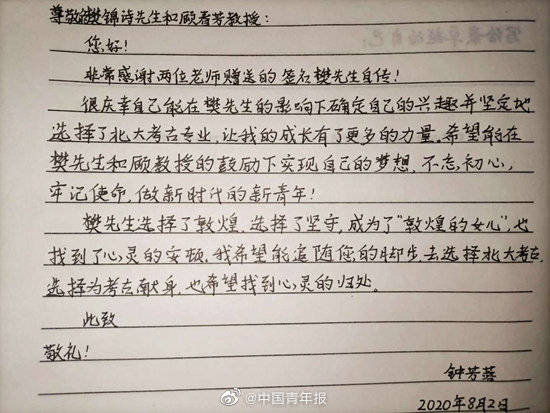 尊敬的樊锦诗先生和顾春芳教授：
您好！
非常感谢两位老师赠送的签名樊先生自传！
很庆幸自己能在樊先生的影响下确定自己的兴趣并坚定地
选择了北大考古专业，让我的成长有了更多的力量。希望能在
樊先生和顾教授的鼓励下实现自己的梦想，不忘初心，
牢记使命，做新时代的新青年！
樊先生选择了敦煌，选择了坚守，成为了“敦煌的女儿”，也
找到了心灵的安顿，我希望能追随您的脚步，去选择北大考古，
选择为考古献身，也希望找到心灵的归处。
此致
敬礼！
钟芳蓉
2020年8月2日
@中国青年报